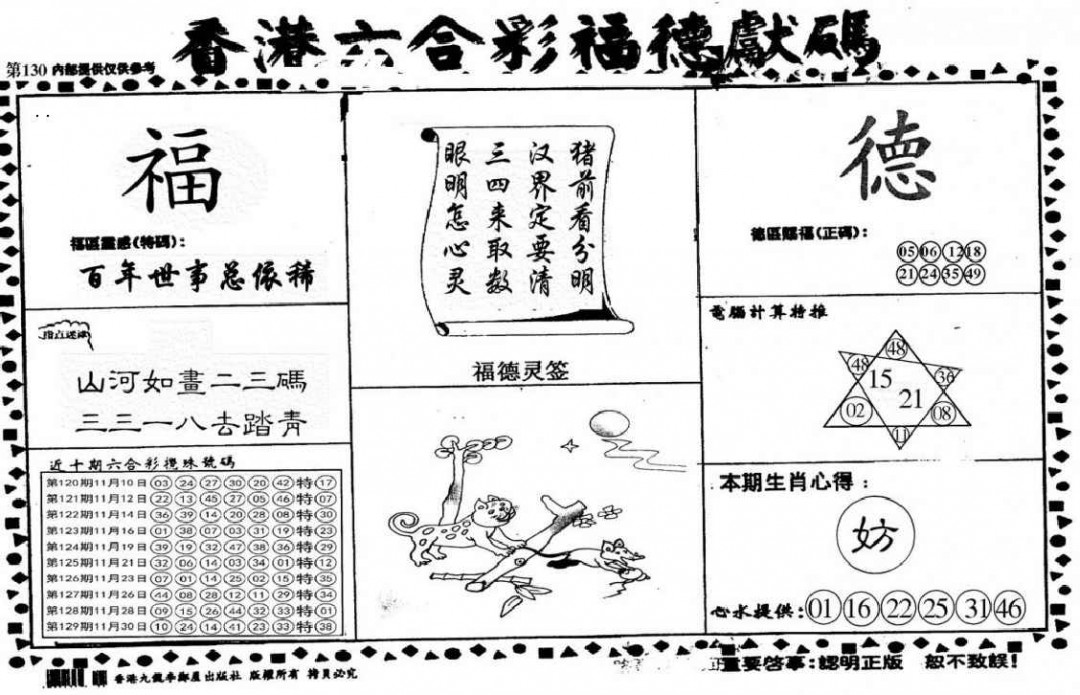 香港六合彩福德獻碼
第130 内部提供仅供参考
福
福區靈感(特碼):
百年世事总依稀
指点迷津
山河如畫二三碼
三三一八去踏青
近十期六合彩攪珠號碼
第120期11月10日 03 24 27 30 20 42 特 17
第121期11月12日 22 13 45 27 05 46 特 07
第122期11月14日 36 39 14 20 28 08 特 30
第123期11月16日 01 38 07 03 31 19 特 23
第124期11月19日 39 19 32 47 38 36 特 29
第125期11月21日 32 06 14 03 34 01 特 12
第126期11月23日 07 01 14 25 02 15 特 35
第127期11月26日 44 08 28 12 11 29 特 34
第128期11月28日 09 15 26 44 32 33 特 01
第129期11月30日 10 24 14 41 23 33 特 38
猪前看分明
汉界定要清
三四来取数
眼明怎心灵
福德灵签
德
德區賜福(正碼):
05 06 12 18
21 24 35 49
電腦計算特推
48
48 36
15
21
02 08
11
本期生肖心得:
妨
心水提供: 01 16 22 25 31 46
香港九龍 出版社 版權所有 拷貝必究
重要啓事:認明正版 恕不致誤!